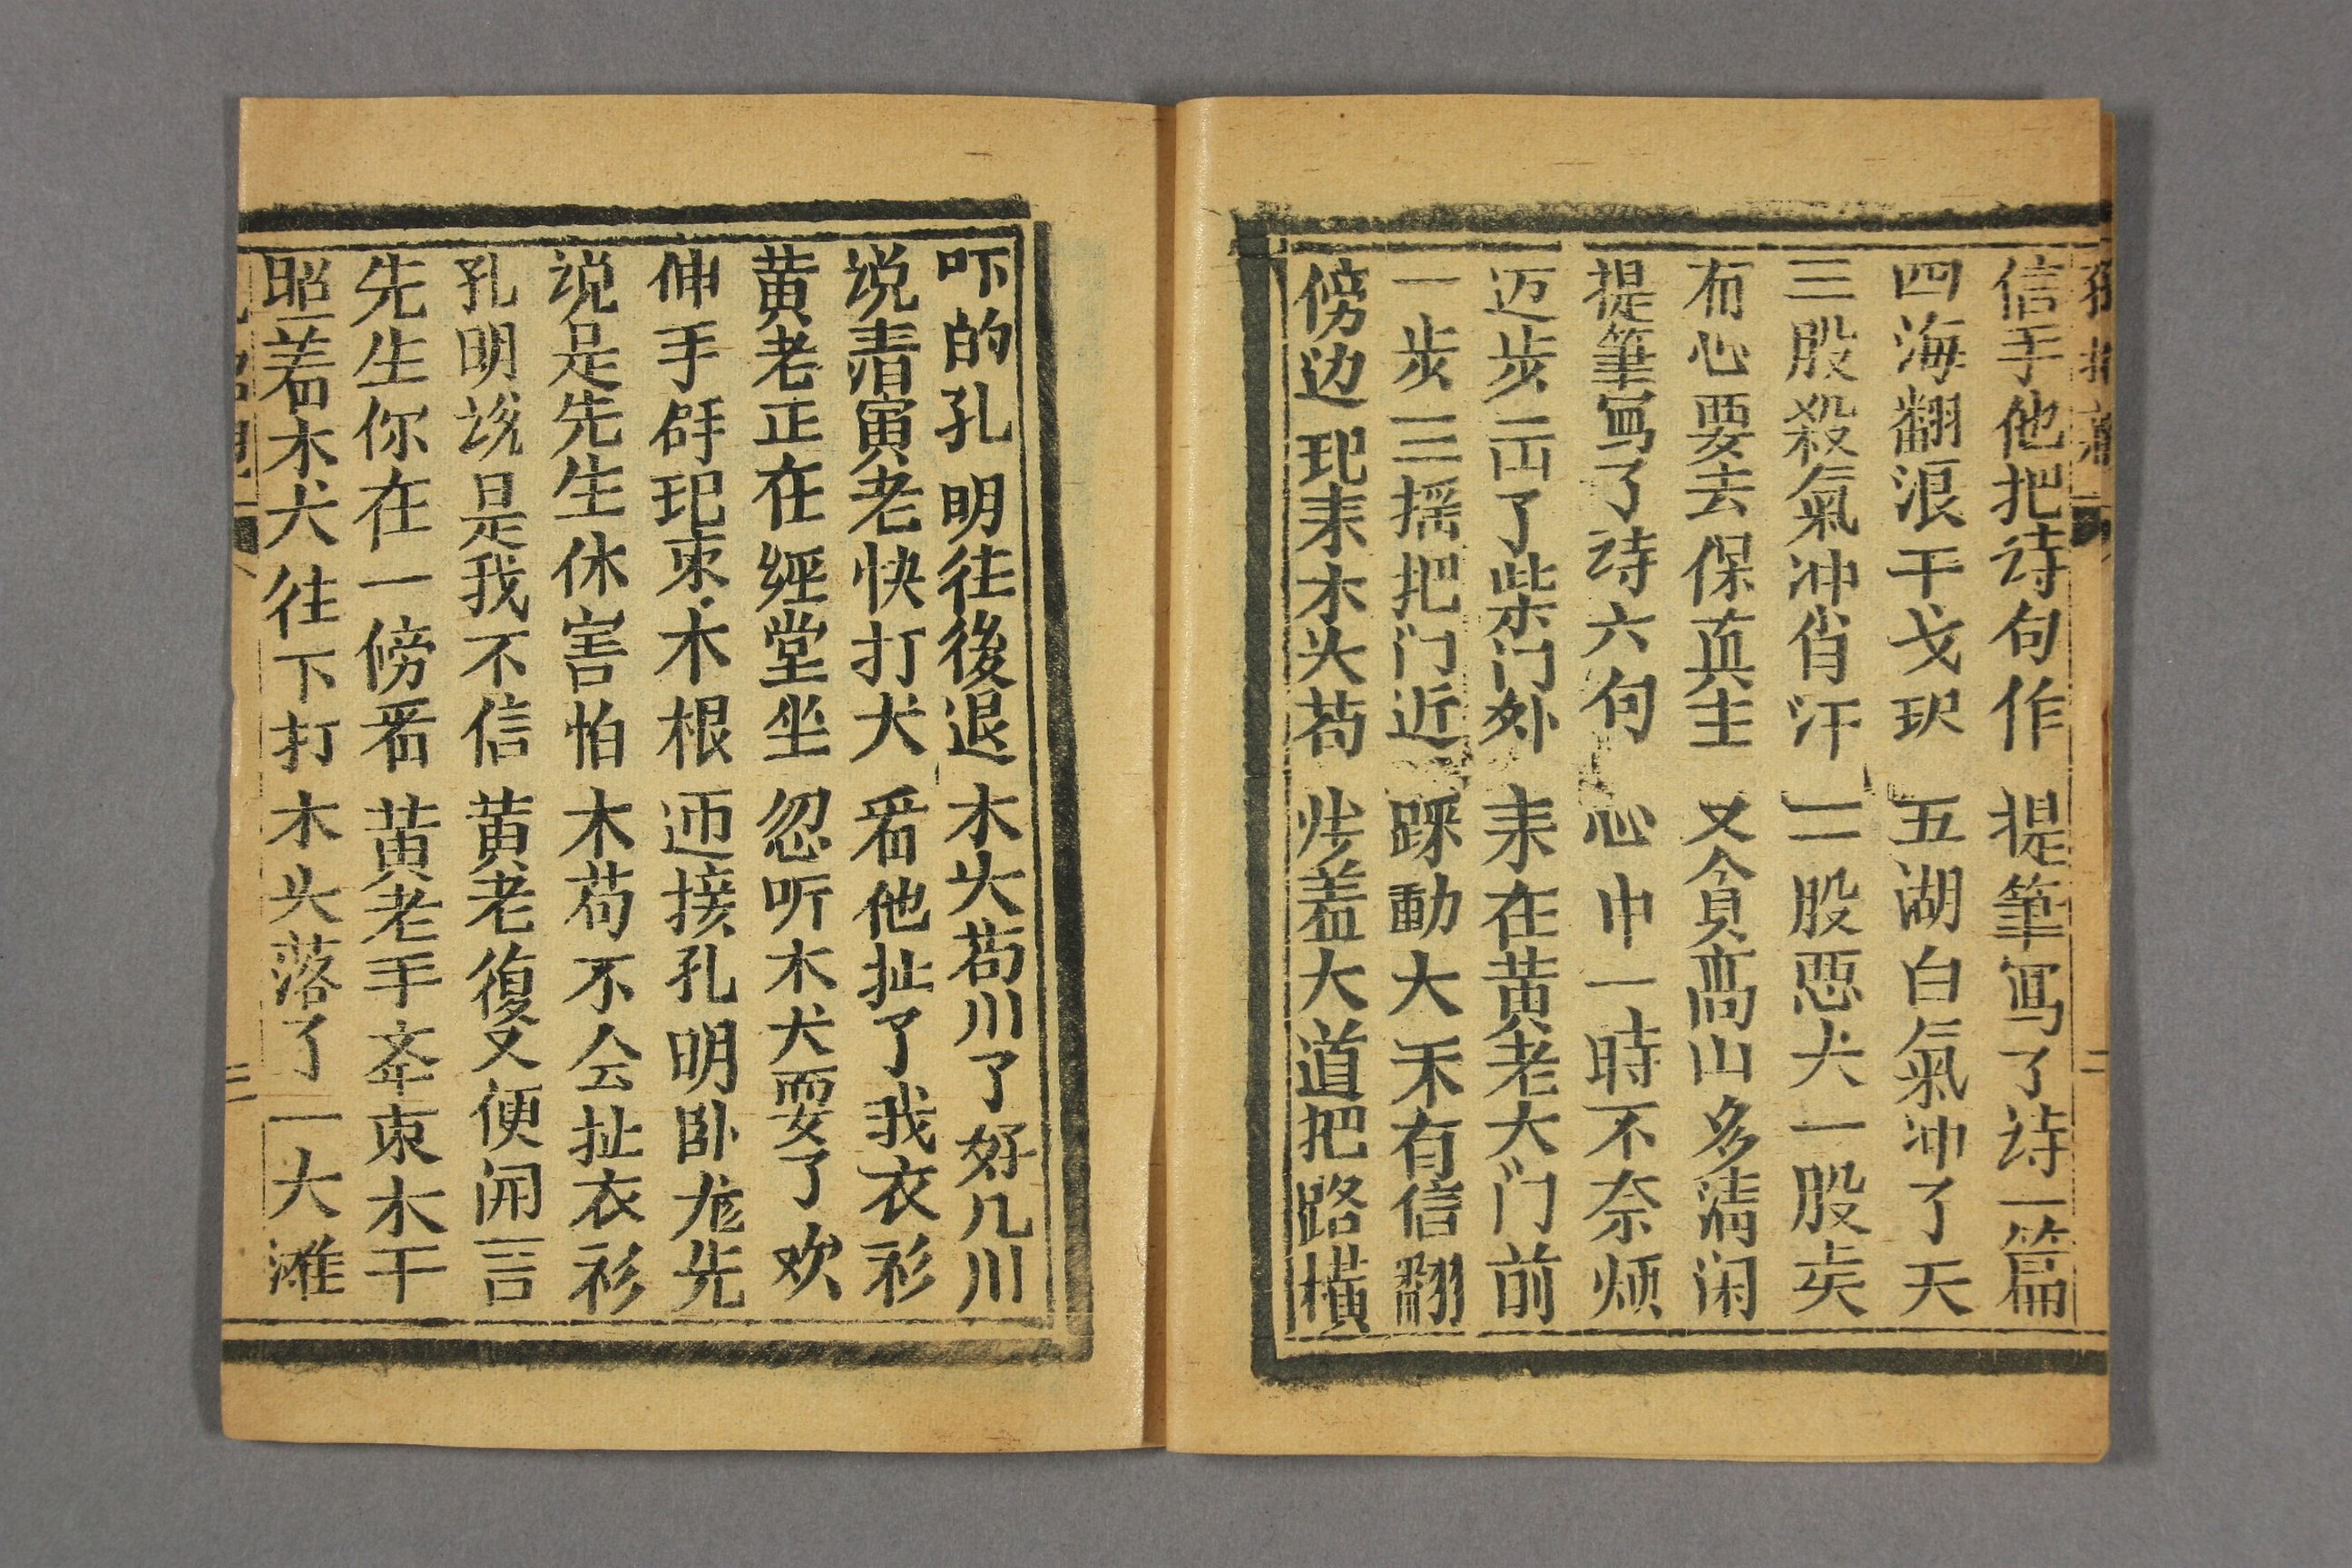 信手他把诗句作 提筆寫了诗一篇
四海翻浪干戈现 五湖白氣冲了天
三股殺氣冲肖汗 二股恶犬一股炎
有心要去保真主 又貪高山多清闲
提筆寫了诗六句 心中一時不奈烦
迈步出了柴门外 来在黄老大门前
一步三摇把门近 踩動大禾有信翻
傍边现来木头苟 步盖大道把路横
吓的孔明往後退 木头苟川了好几川
说声黄老快打犬 看他扯了我衣衫
黄老正在經堂坐 忽听木犬耍了欢
伸手辟现枣木根 迊接孔明卧龙先
说是先生休害怕 木苟不会扯衣衫
孔明说是我不信 黄老復又便闹言
先生你在一傍看 黄老手牵枣木干
照着木犬往下打 木头落了一大滩
三